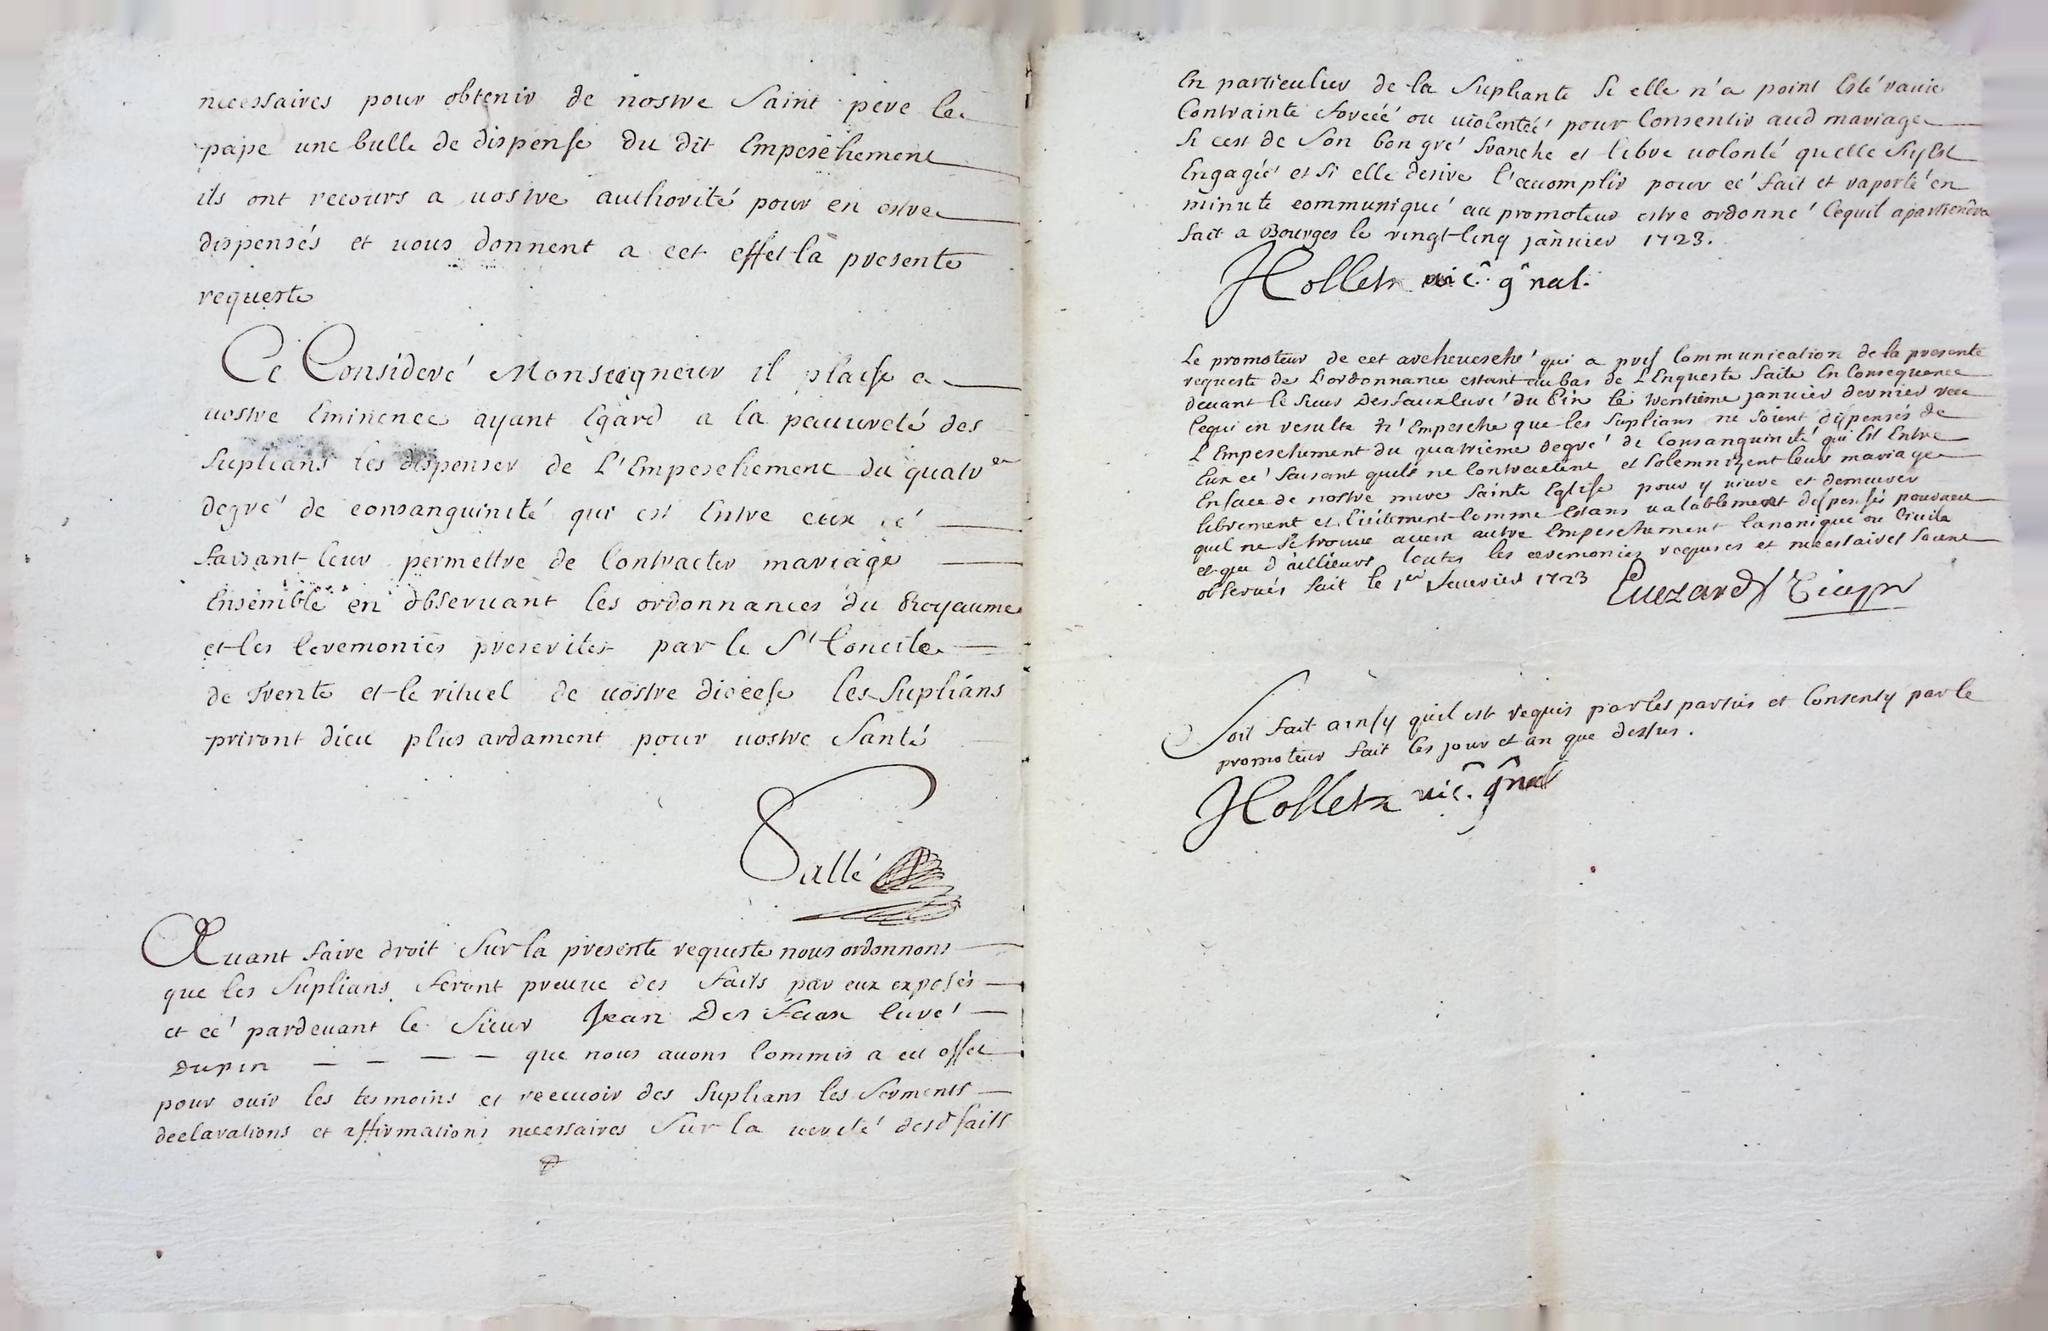 necessaires pour obtenir de nostre Saint pere le
pape une bulle de dispense du dit Empeschement
ils ont recours a vostre authorité pour en estre
dispensés et vous donnent a cet effet la presente
requeste
Ce Consideré Monseigneur il plaise a
vostre Eminence ayant Egard a la pauvreté des
Suplians les dispenser de L'Empeschement du quatr^e
degré de consanguinité qui est Entre eux cé
faisant leur permettre de Contracter mariage
Ensemble en observant les ordonnances du Royaume
et les Ceremonies prescrites par le S^t Concile
de Trente et le rituel de vostre diocese les Suplians
priront dieu plus ardament pour vostre Santé
Sallé
Avant faire droit Sur la presente requeste nous ordonnons
que les Suplians feront preuve des faits par eux exposés
et cé pardevant le Sieur Jean Des faux Curé
Dupin — — — — que nous avons Commis a cet effet
pour ouir les tesmoins et recevoir des Suplians les Serments
declarations et affirmations necessaires Sur la verité desd faits
En particulier de la Supliante Si elle n'a point Esté ravie
Contrainte forcéé ou violentéé pour Consentir aud mariage
Si cest de Son bon gré franche et libre volonté quelle Sy Est
Engagéé et Si elle desire l'accomplir pour cé fait et raporté en
minute communiqué au promoteur estre ordonné Cequil apartiendra
fait a Bourges le vingt Cinq janvier 1723.
Hollet vic. gñal.
Le promoteur de cet archevesché qui a pris Communication de la presente
requeste de l'ordonnance estant au bas de L'Enqueste faite En Consequence
devant le Sieur Desfaux Curé du Pin le trentième janvier dernier veu
Cequi en resulte N'Empesche que les Suplians ne Soient dispensés de
L'Empeschement du quatrieme degré de Consanguinité qui Est Entre
Eux cé faisant quils ne Contractent et Solemnizent leur mariage
Enface de nostre mere Sainte Eglise pour y vivre et demeurer
librement et licitement Comme Estans valablement dispensés pourveu
quil ne Se trouve aucun autre Empeschement Canonique ou Civile
et que d'ailleurs toutes les ceremonies requises et necessaires Soient
observés fait le 1^er fevrier 1723
Soit fait ainsy quil est requis par les parties et Consenty par le
promoteur fait les jour et an que dessus.
Hollet vic. gñal